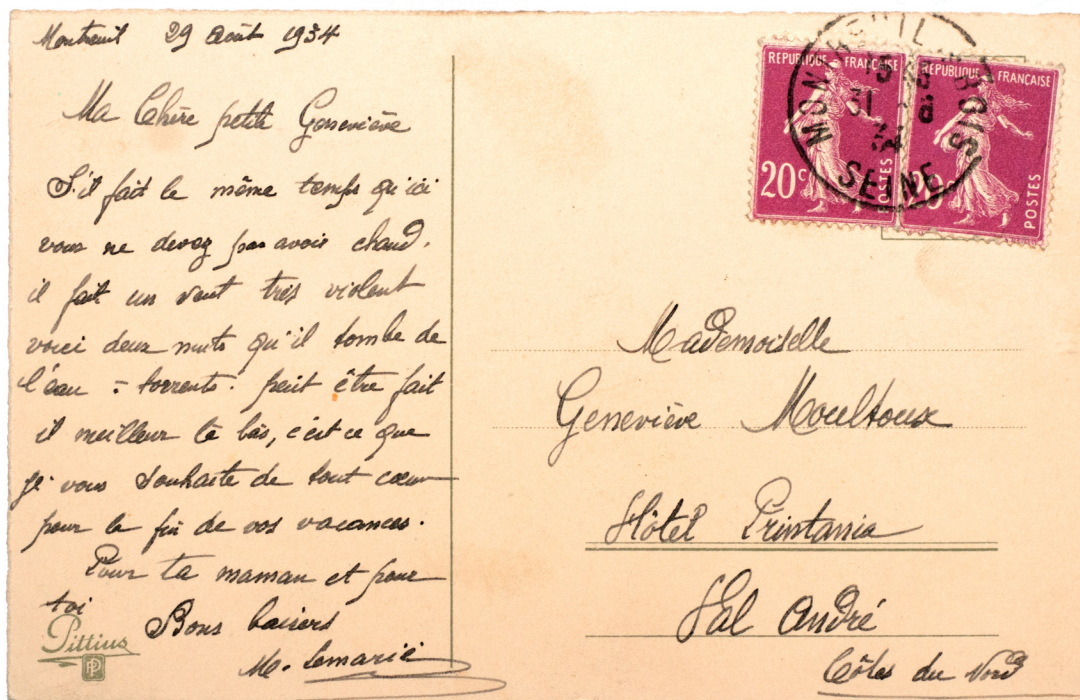 Montreuil 29 Août 1934
Ma Chère petite Geneviève
S'il fait le même temps qu'ici
vous ne devez pas avoir chaud.
il fait un vent très violent
voici deux nuits qu'il tombe de
l'eau à torrents. peut être fait
il meilleur là bas, c'est ce que
je vous souhaite de tout cœur
pour la fin de vos vacances.
Pour ta maman et pour
toi Bons baisers
M. Lemarié
Pittius
PP
REPUBLIQUE FRANÇAISE
20c POSTES
REPUBLIQUE FRANÇAISE
20 POSTES
MONTREUIL S BOIS
15
31 8
34
SEINE
Mademoiselle
Geneviève Moultoux
Hôtel Printania
Val André
Côtes du Nord